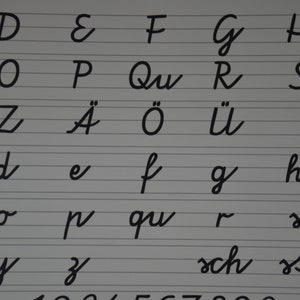 D E F G H
O P Qu R S
Z Ä Ö Ü
d e f g h
o p qu r s
y z sch